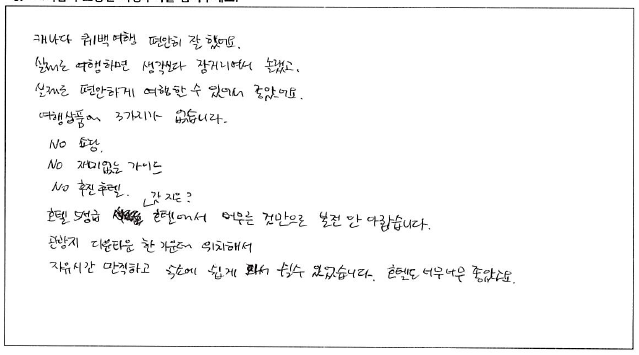 캐나다 퀘백여행 편안히 잘 했어요.
실제로 여행하면 생각보다 장거니에서 놀랬고.
실제로 편안하게 여행할 수 있어서 좋았어요.
여행상품에 3가지가 없습니다.
NO 쇼핑.
NO 재미없는 가이드
NO 후진 호텔.
갓 지은?
호텔 5성급 호텔에서 머무는 것만으로 본전 안 아깝습니다.
관광지 다운타운 한 가운데 위치해서
자유시간 만끽하고 숙소에 쉽게 와서 쉴수 있었습니다. 호텔도 너무너무 좋았구요.